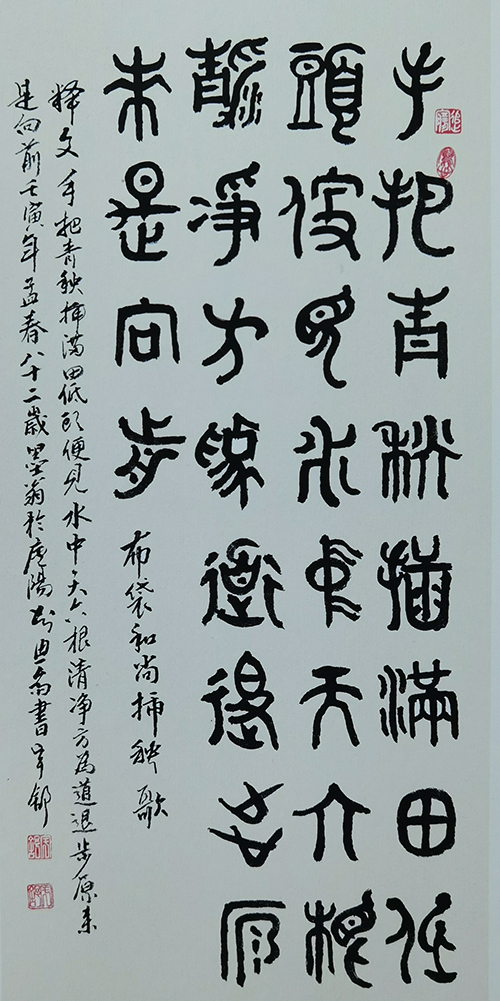 手把青秧插滿田低
頭便見水中天六根
清淨方為道退步原
來是向前
布袋和尚插秧歌
释文手把青秧插满田低头便見水中天六根清净方為道退步原来
是向前壬寅年孟春八十二歲墨翁於庆陽書